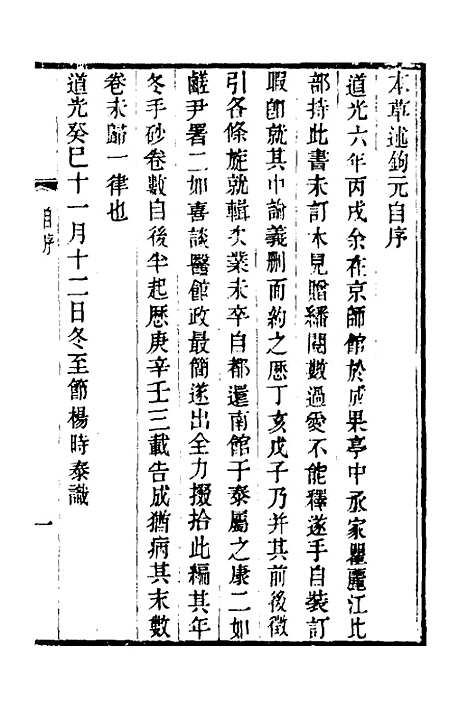 本草述鉤元自序
道光六年丙戌余在京師館於成果亭中丞家瞿麗江比
部持此書未訂本見贈繙閱數過愛不能釋遂手自裝訂
暇卽就其中論義刪而約之歷丁亥戊子乃并其前後徵
引各條旋就輯矢業未卒自都還南館于泰屬之康二如
鹺尹署二如喜談醫館政最簡遂出全力掇拾此編其年
冬手砂卷數自後半起歷庚辛壬三載告成猶病其末數
卷未歸一律也
道光癸巳十一月十二日冬至節楊時泰識
自序
一